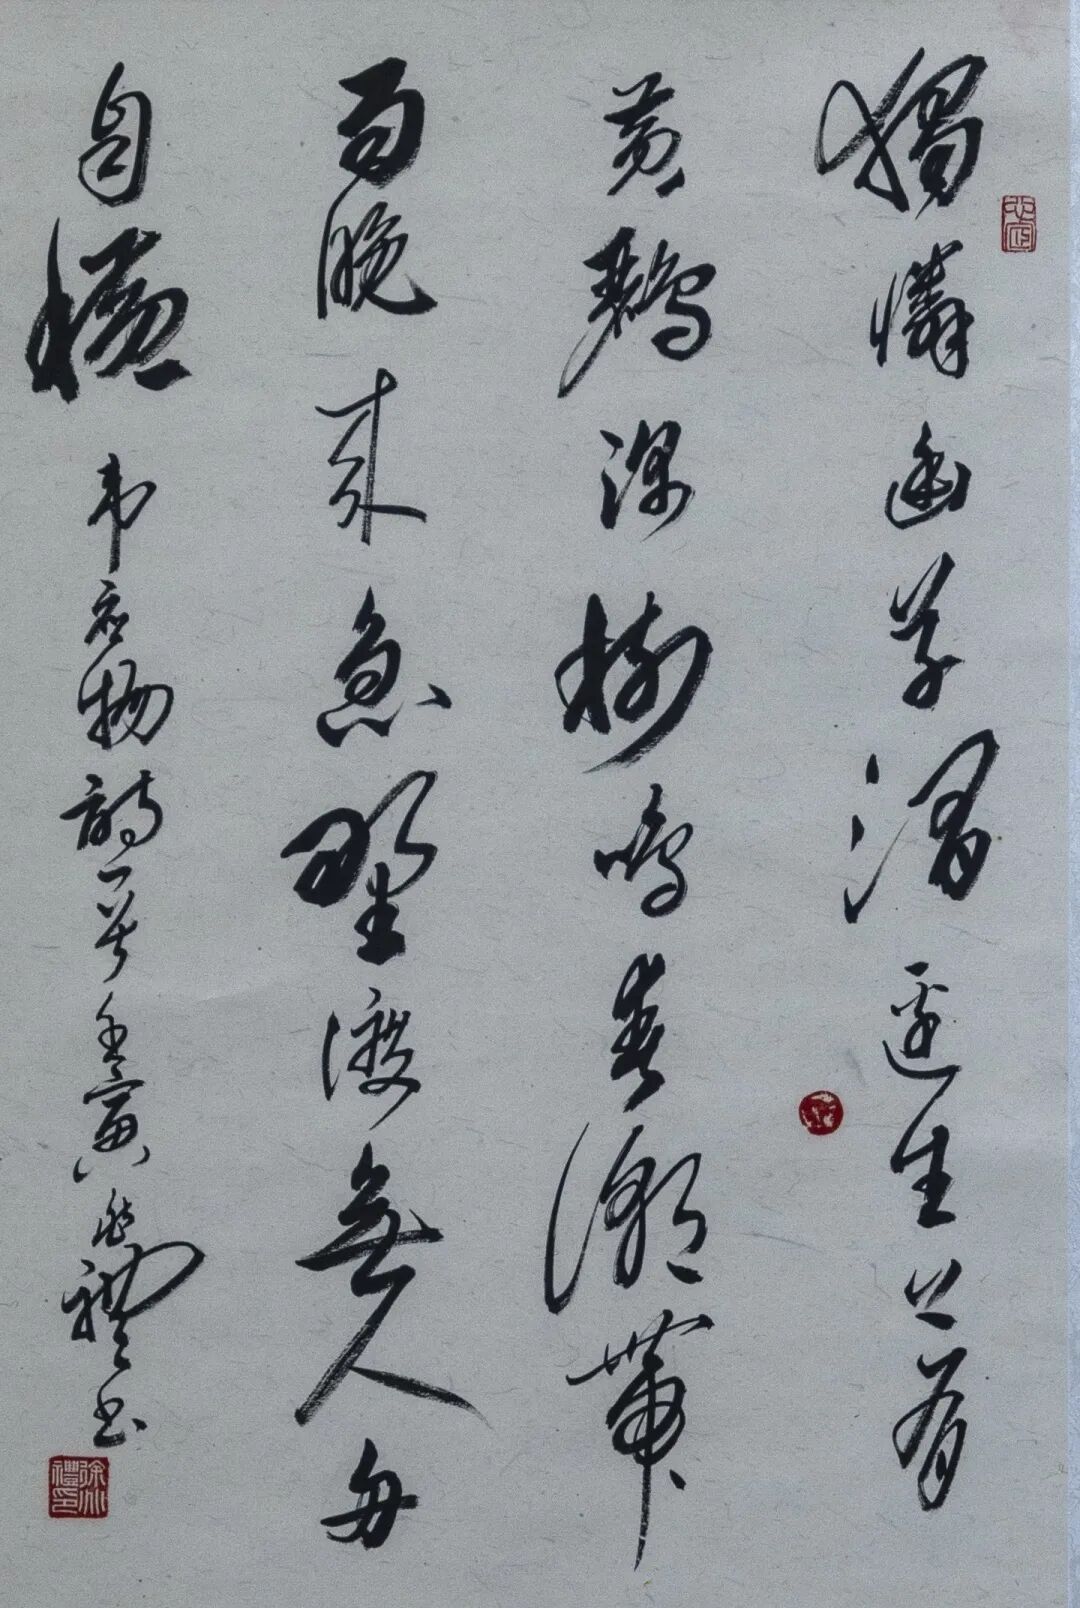 獨憐幽草澗邊生上有
黄鸝深樹鳴春潮帶
雨晚來急野渡無人舟
自橫 韦应物詩一首 壬寅 禮书